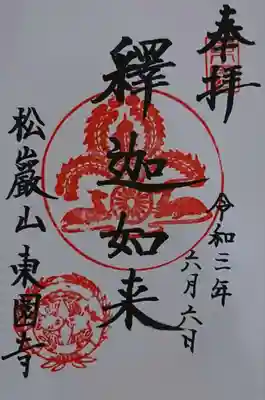 奉拝
令和三年
六月六日
釋迦如来
松巖山 東園寺